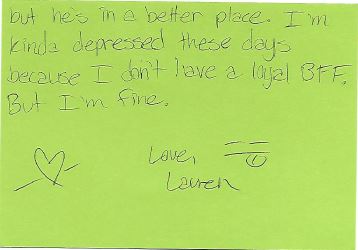 but he's in a better place. I'm
kinda depressed these days
because I don't have a loyal BFF.
But I'm fine.
Love,
Lauren